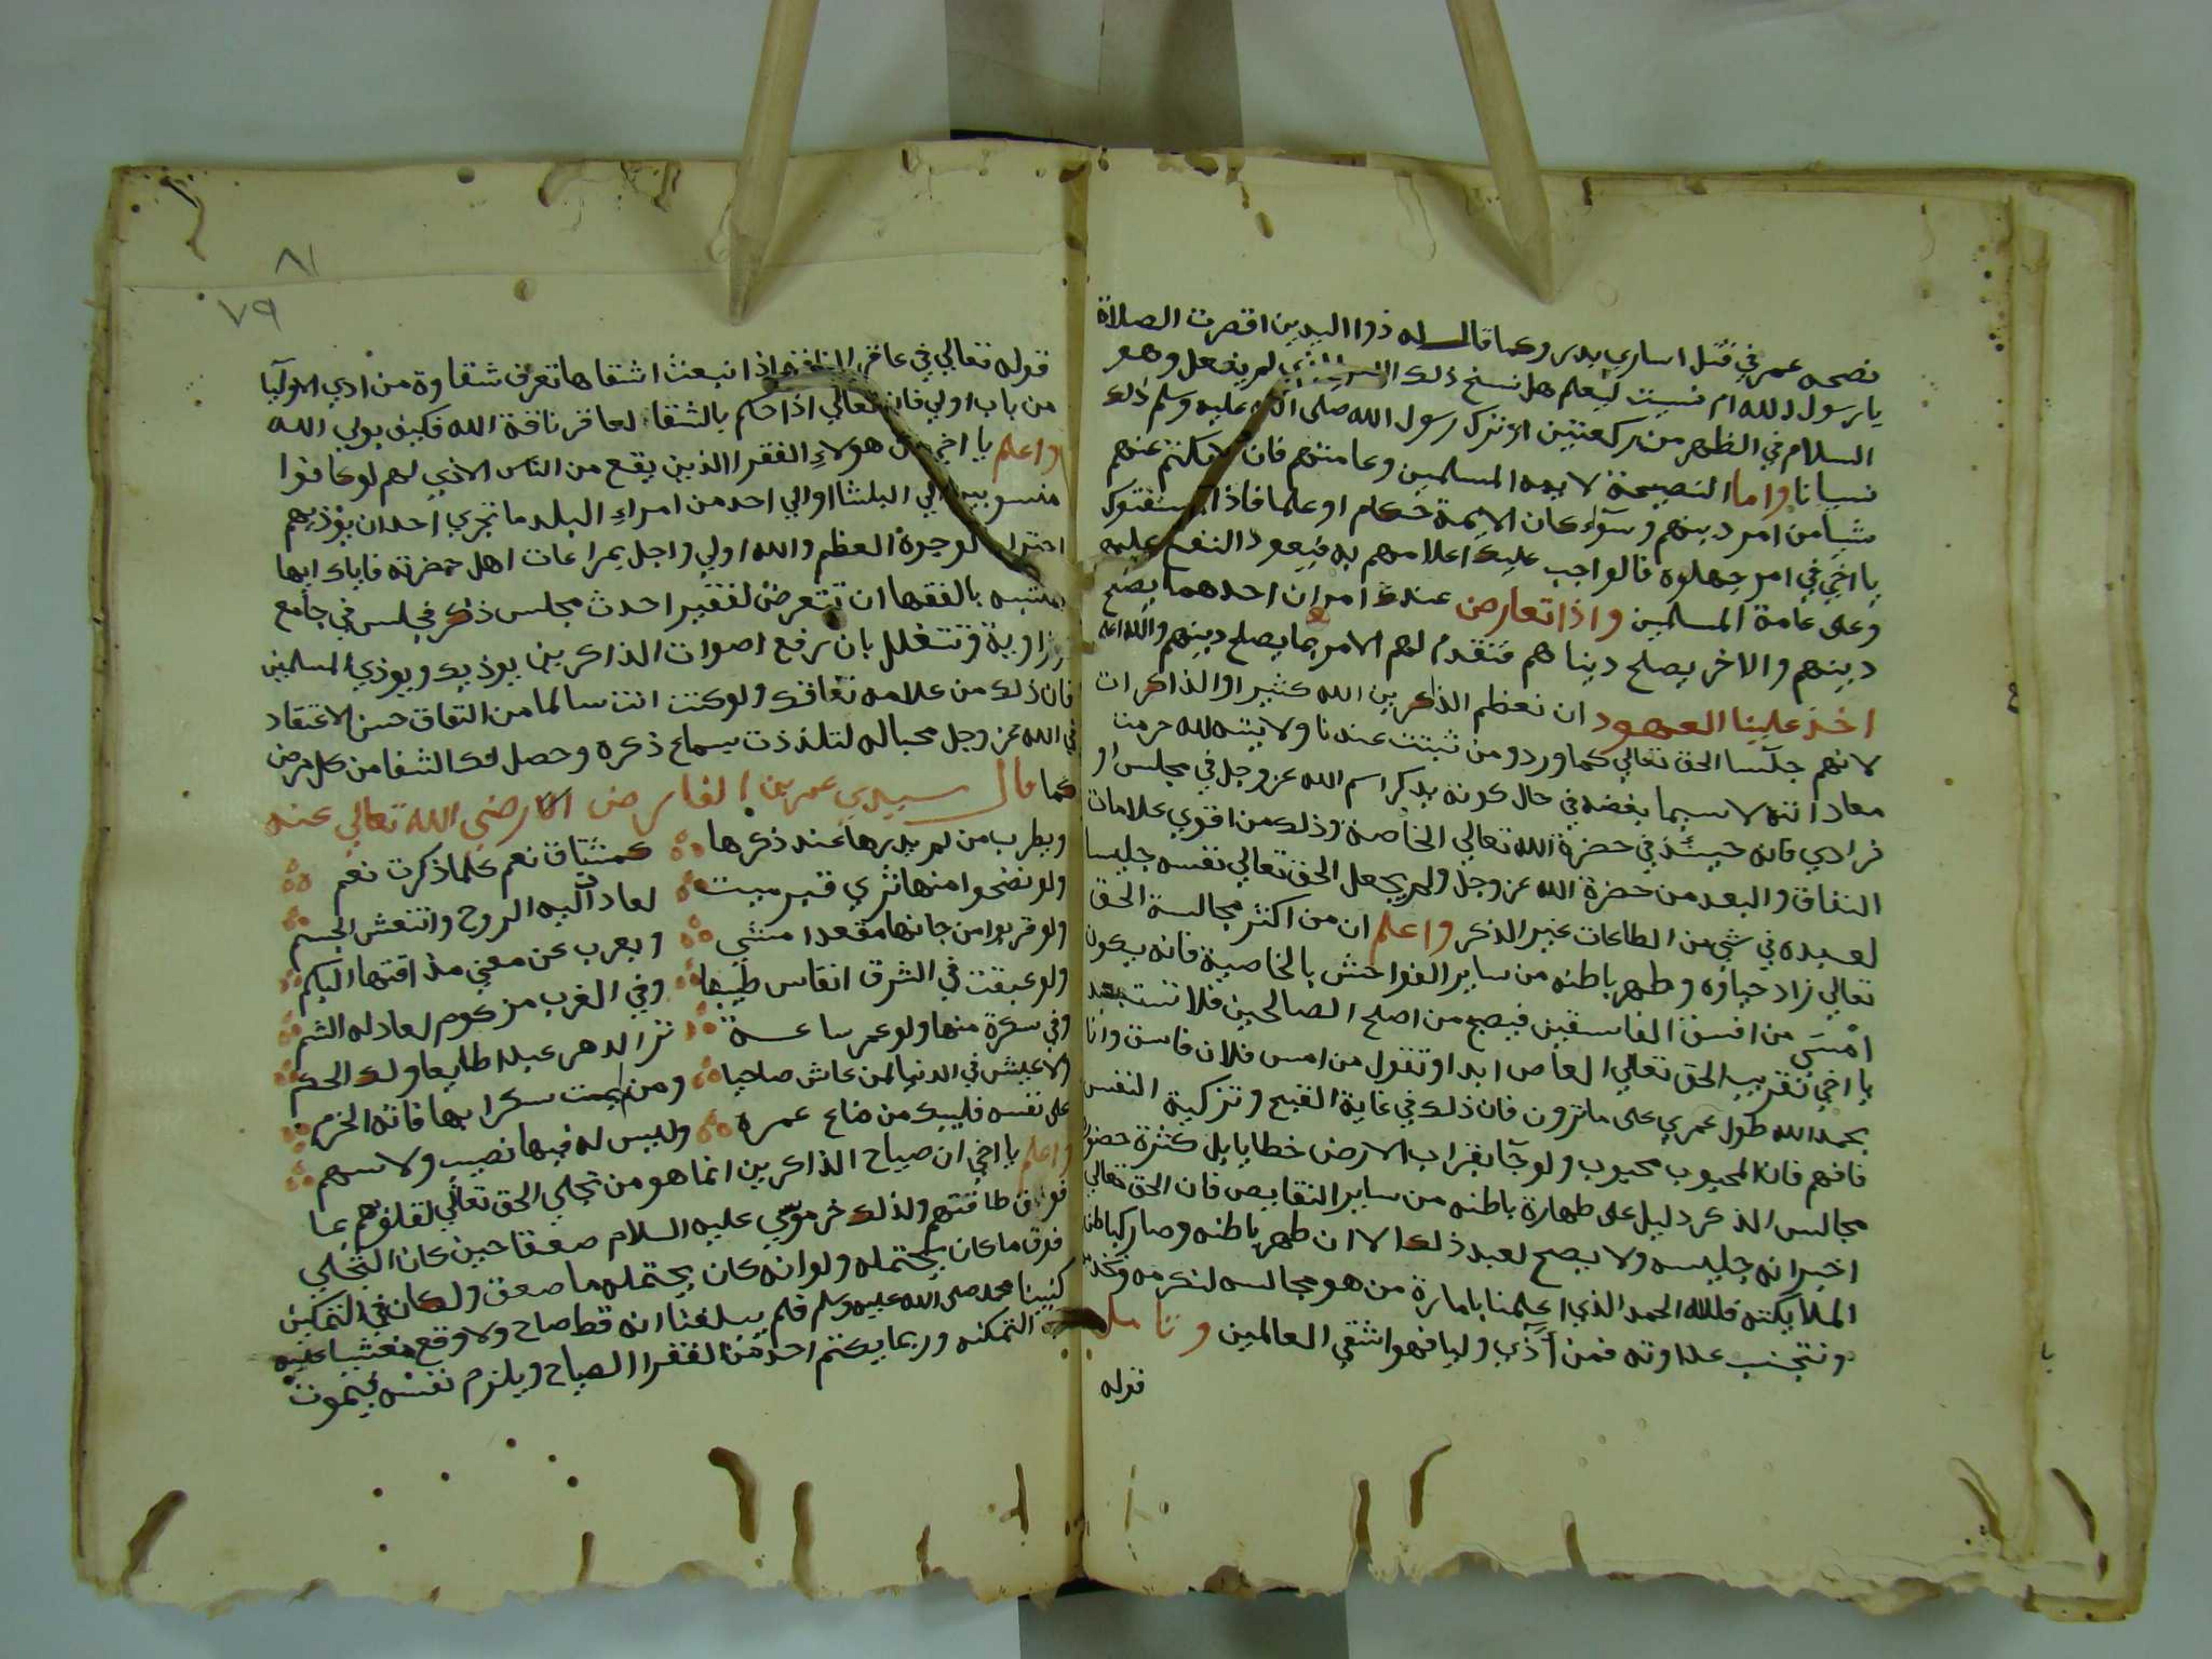 نصحه عمر في قتل اساري بدر وكما قال له ذوا اليدين اقصرت الصلاة
يا رسول الله ام نسيت ليعلم هل نسخ ذلك لم يفعل وهو
السلام في الظهر من ركعتين او ترك رسول الله صلى الله عليه وسلم ذلك
نسيانا واما النصيحة لايمه المسلمين وعامتهم فان لا تكتم عنهم
شيا من امر دينهم وسواء كان الايمة حكام او علما فاذا استفتوك
يا اخي في امر جهلوه فالواجب عليك اعلامهم به فيعود النفع عليهم
وعلى عامة المسلمين واذا تعارض عندك امران احدهما يصلح
دينهم والاخر يصلح دنياهم فتقدم لهم الامر بما يصلح دينهم والله اعلم
اخذ علينا العهود ان نعظم الذاكرين الله كثيرا والذاكرات
لانهم جلسا الحق تعالي كما ورد ومن ثبتت عندنا ولايته لله حرمت
معاداته لا سيما بغضه في حال كونه يذكر اسم الله عز وجل في مجلس او
فرادي فانه حينئذ في حضرة الله تعالي الخاصة وذلك من اقوي علامات
النفاق والبعد من حضرة الله عز وجل ولم يجعل الحق تعالي نفسه جليسا
لعبده في شي من الطاعات غير الذكر واعلم ان من اكثر مجالسة الحق
تعالي زاد حياؤه وطهر باطنه من ساير الفواحش بالخاصية فانه يكون
امسى من افسق الفاسقين فيصبح من اصلح الصالحين فلا تستبعد
يا اخي تقريب الحق تعالي العاص ابدا وتقول من امس فلان فاسق وانا
بحمد الله طول عمري على ما ترون فان ذلك في غاية القبح وتزكية النفس
فافهم فان المحبوب محبوب ولو جآ بقراب الارض خطايا بل كثرة حضور
مجالس الذكر دليل على طهارة باطنه من ساير النقايص فان الحق تعالي
اخبر انه جليسه ولا يصح لعبد ذلك الا ان طهر باطنه وصار كباطن
الملايكته فلله الحمد الذي اعلمنا بامارة من هو مجالسه لنكرمه ونخدمه
ونتجنب عداوته فمن آذي وليا فهو اشقي العالمين وتامل
قوله
٨١
٧٩
قوله تعالي في عاقر الناقة اذ انبعث اشقاها تعرف شقاوة من اذي الاوليا
من باب اولي فانه تعالي اذا حكم بالشقا لعاقر ناقة الله فكيف بولي الله
واعلم يا اخي ان هولاء الفقرا الذين يقع من الناس الاذي لهم لو كانوا
منسوبين الي الباشا او الي احد من امراء البلد ما تجري احد ان يؤذيهم
احتراما لوجوه العظم والله اولي واجل بمراعات اهل حضرته فاياك ايها
المتشبه بالفقها ان تتعرض لفقير احدث مجلس ذكر فجلس في جامع
او زاوية وتتعلل بان رفع اصوات الذاكرين يوذيك ويوذي المسلمين
فان ذلك من علامه نفاقك ولو كنت انت سالما من النفاق حسن الاعتقاد
في الله عز وجل محبا له لتلذذت بسماع ذكره وحصل لك الشفا من كل مرض
كما قال سيدي عمر بن الفارض رضي الله تعالي عنه
ويطرب من لم يدرها عند ذكرها كمشتاق نعم كلما ذكرت نعم
ولو نضحوا منها ثري قبر ميت لعاد اليه الروح وانتعش الجسم
ولو قربوا من حانها مقعدا مشي ويعرب عن معني مذاقتها البكم
ولو عبقت في الشرق انفاس طيبها وفي الغرب مزكوم لعاد له الشم
وفي سكرة منها ولو عمر ساعة تر الدهر عبدا طايعا ولك الحكم
ولا عيش في الدنيا لمن عاش صاحيا ومن لم يمت سكرا بها فاته الحزم
على نفسه فليبك من ضاع عمره وليس له فيها نصيب ولا سهم
واعلم يا اخي ان صياح الذاكرين انما هو من تجلي الحق تعالي لقلوبهم بما
فوق طاقتهم ولذلك خر موسي عليه السلام صعقا حين كان التجلي
فوق ما كان يحتمله ولو انه كان يحتمله ما صعق ولكان في التمكين
كنبينا محمد صلى الله عليه وسلم فلم يبلغنا انه قط صاح ولا وقع مغشيا عليه
التمكنه وربما يكتم احد من الفقرا الصياح ويلزم نفسه فيموت